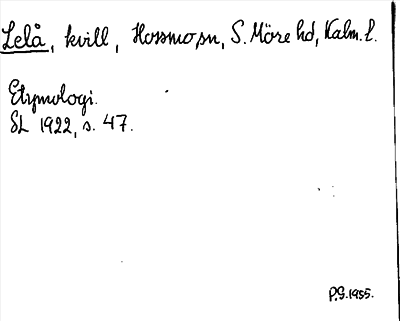 Lelå, kvill, Hossmo sn, S. Möre hd, Kalm. l.
Etymologi.
SL 1922, s. 47.
P.G. 1955.